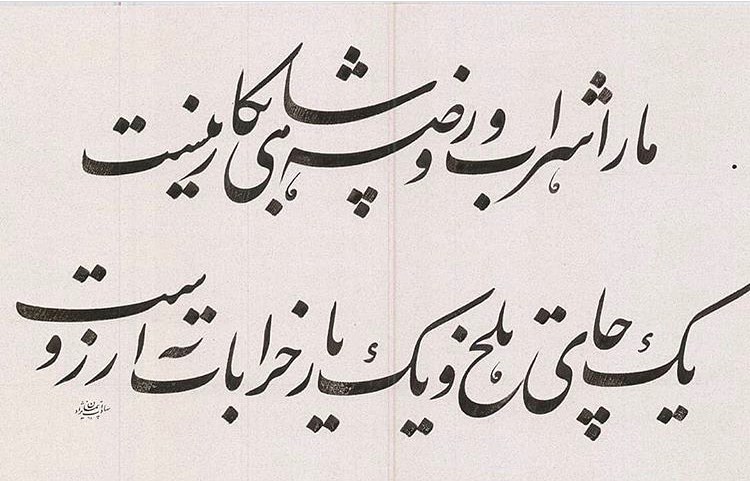 ما را شراب و روضه شاهی بکار نیست
یک چای تلخ و یک یار خراباته ارزوست